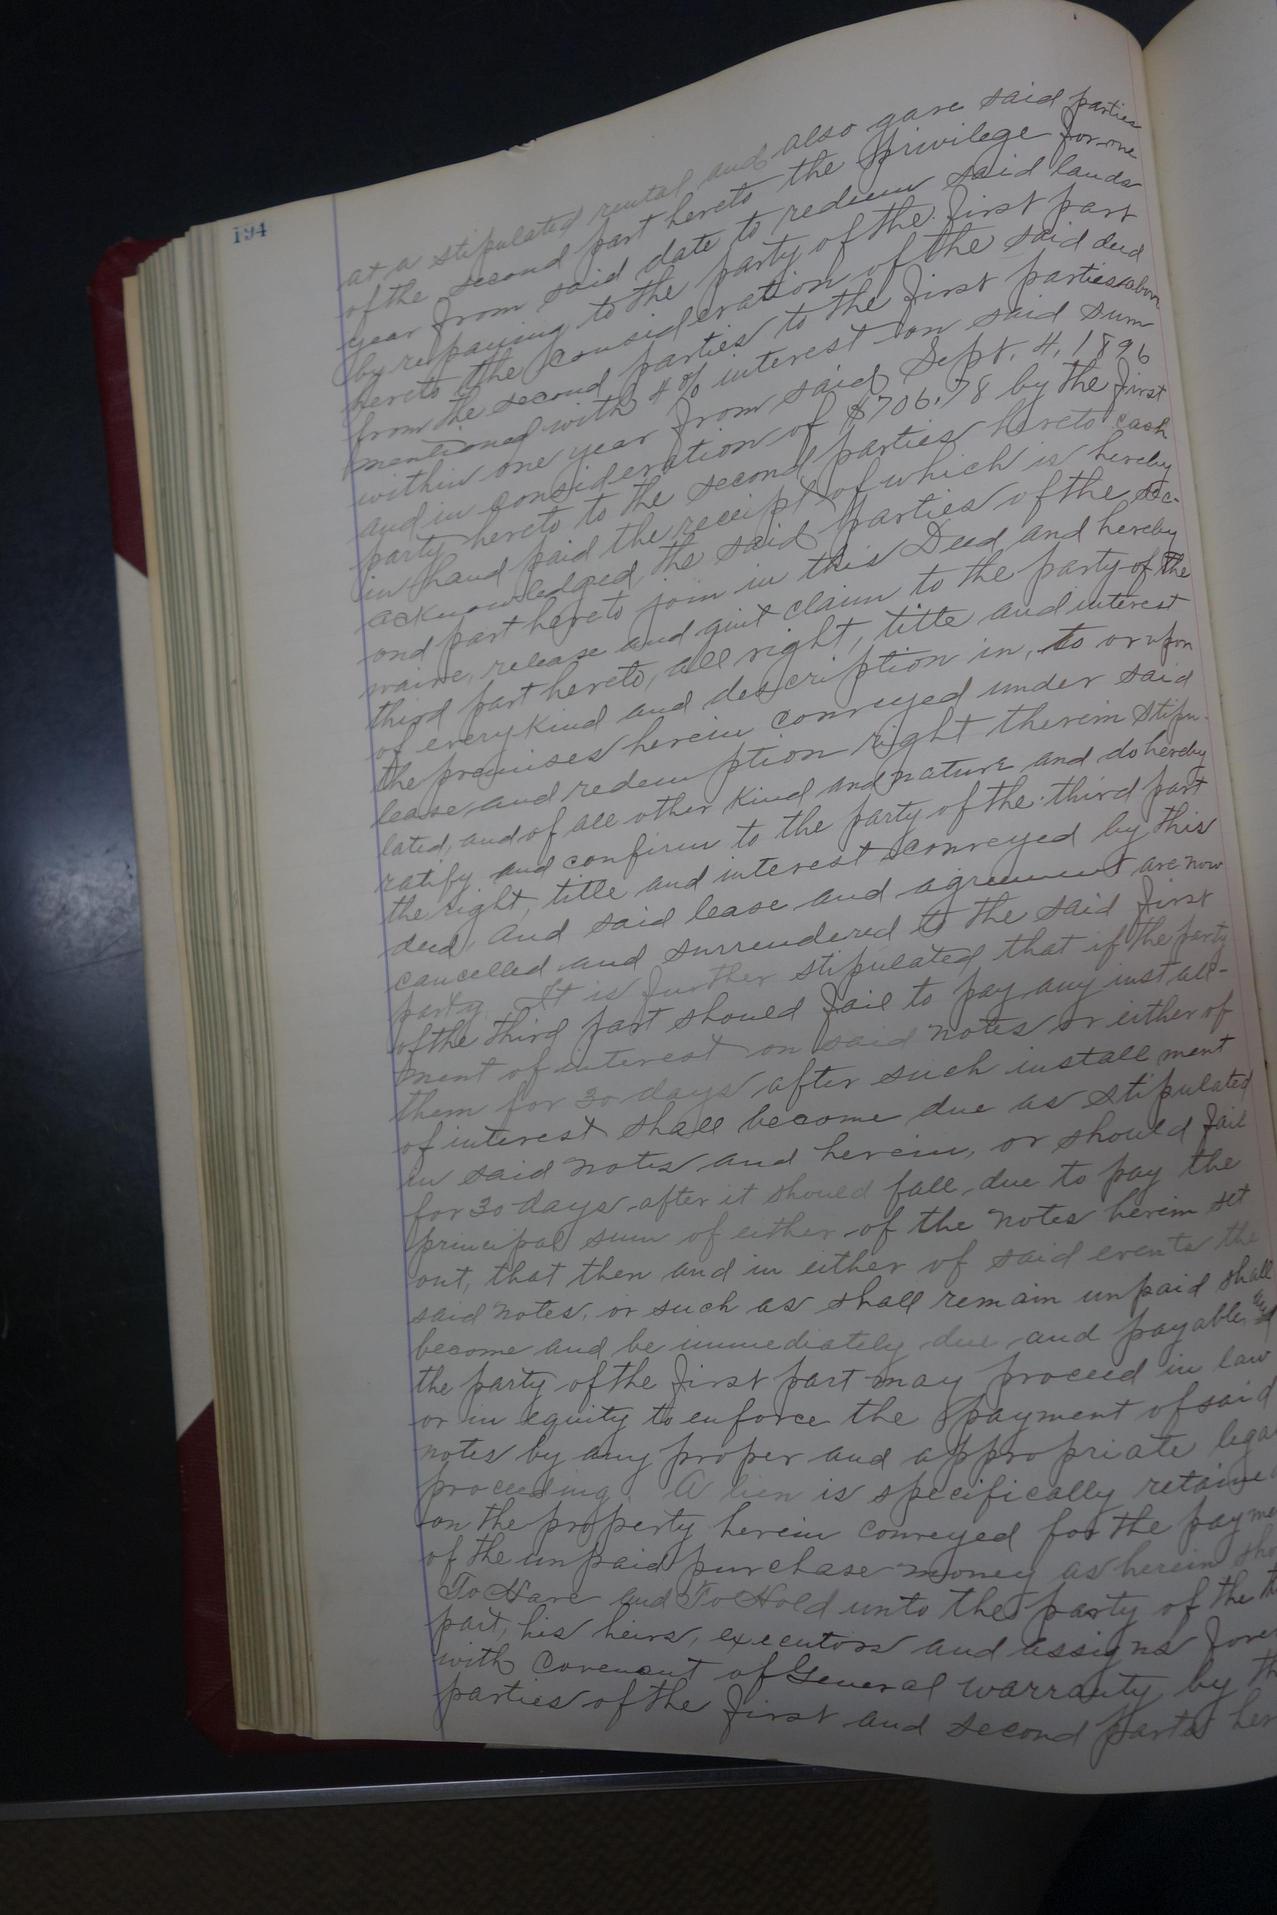 194
at a stipulated rental and also gave said parties
of the second part hereto the privilege for one
year from said date to redeem said lands
by repaying to the party of the first part
hereto the consideration of the said deed
from the second parties to the first parties above
mentioned with % interest on said sum
within one year from said Sept. 4, 1896
and in consideration of $706.78 by the first
party hereto to the second parties hereto cash
in hand paid the receipt of which is hereby
acknowledged the said parties of the sec-
ond part hereto join in this Deed and hereby
waive, release and quit claim to the party of the
third part hereto, all right, title and interest
of every kind and description in, to or upon
the premises herein conveyed under said
lease and redemption right therein stipu-
lated, and of all other kind and nature and do hereby
ratify and confirm to the party of the third part
the right, title and interest conveyed by this
deed, and said lease and agreement are now
cancelled and surrendered to the said first
party. It is further stipulated that if the party
of the third part should fail to pay any install-
ment of interest on said notes or either of
them for 30 days after such install ment
of interest shall become due as stipulated
in said notes and herein, or should fail
for 30 days after it should fall due to pay the
principal sum of either of the notes herein set
out, that then and in either of said events the
said notes, or such as shall remain unpaid shall
become and be immediately due and payable and
the party of the first part may proceed in law
or in equity to enforce the payment of said
notes by any proper and appropriate lega
proceeding. A lien is specifically retaine
on the property herein conveyed for the payme
of the unpaid purchase money as herein sho
To Have and To Hold unto the party of the th
part, his heirs, executors and assigns fore
with covenant of General warranty by th
parties of the first and second parts her